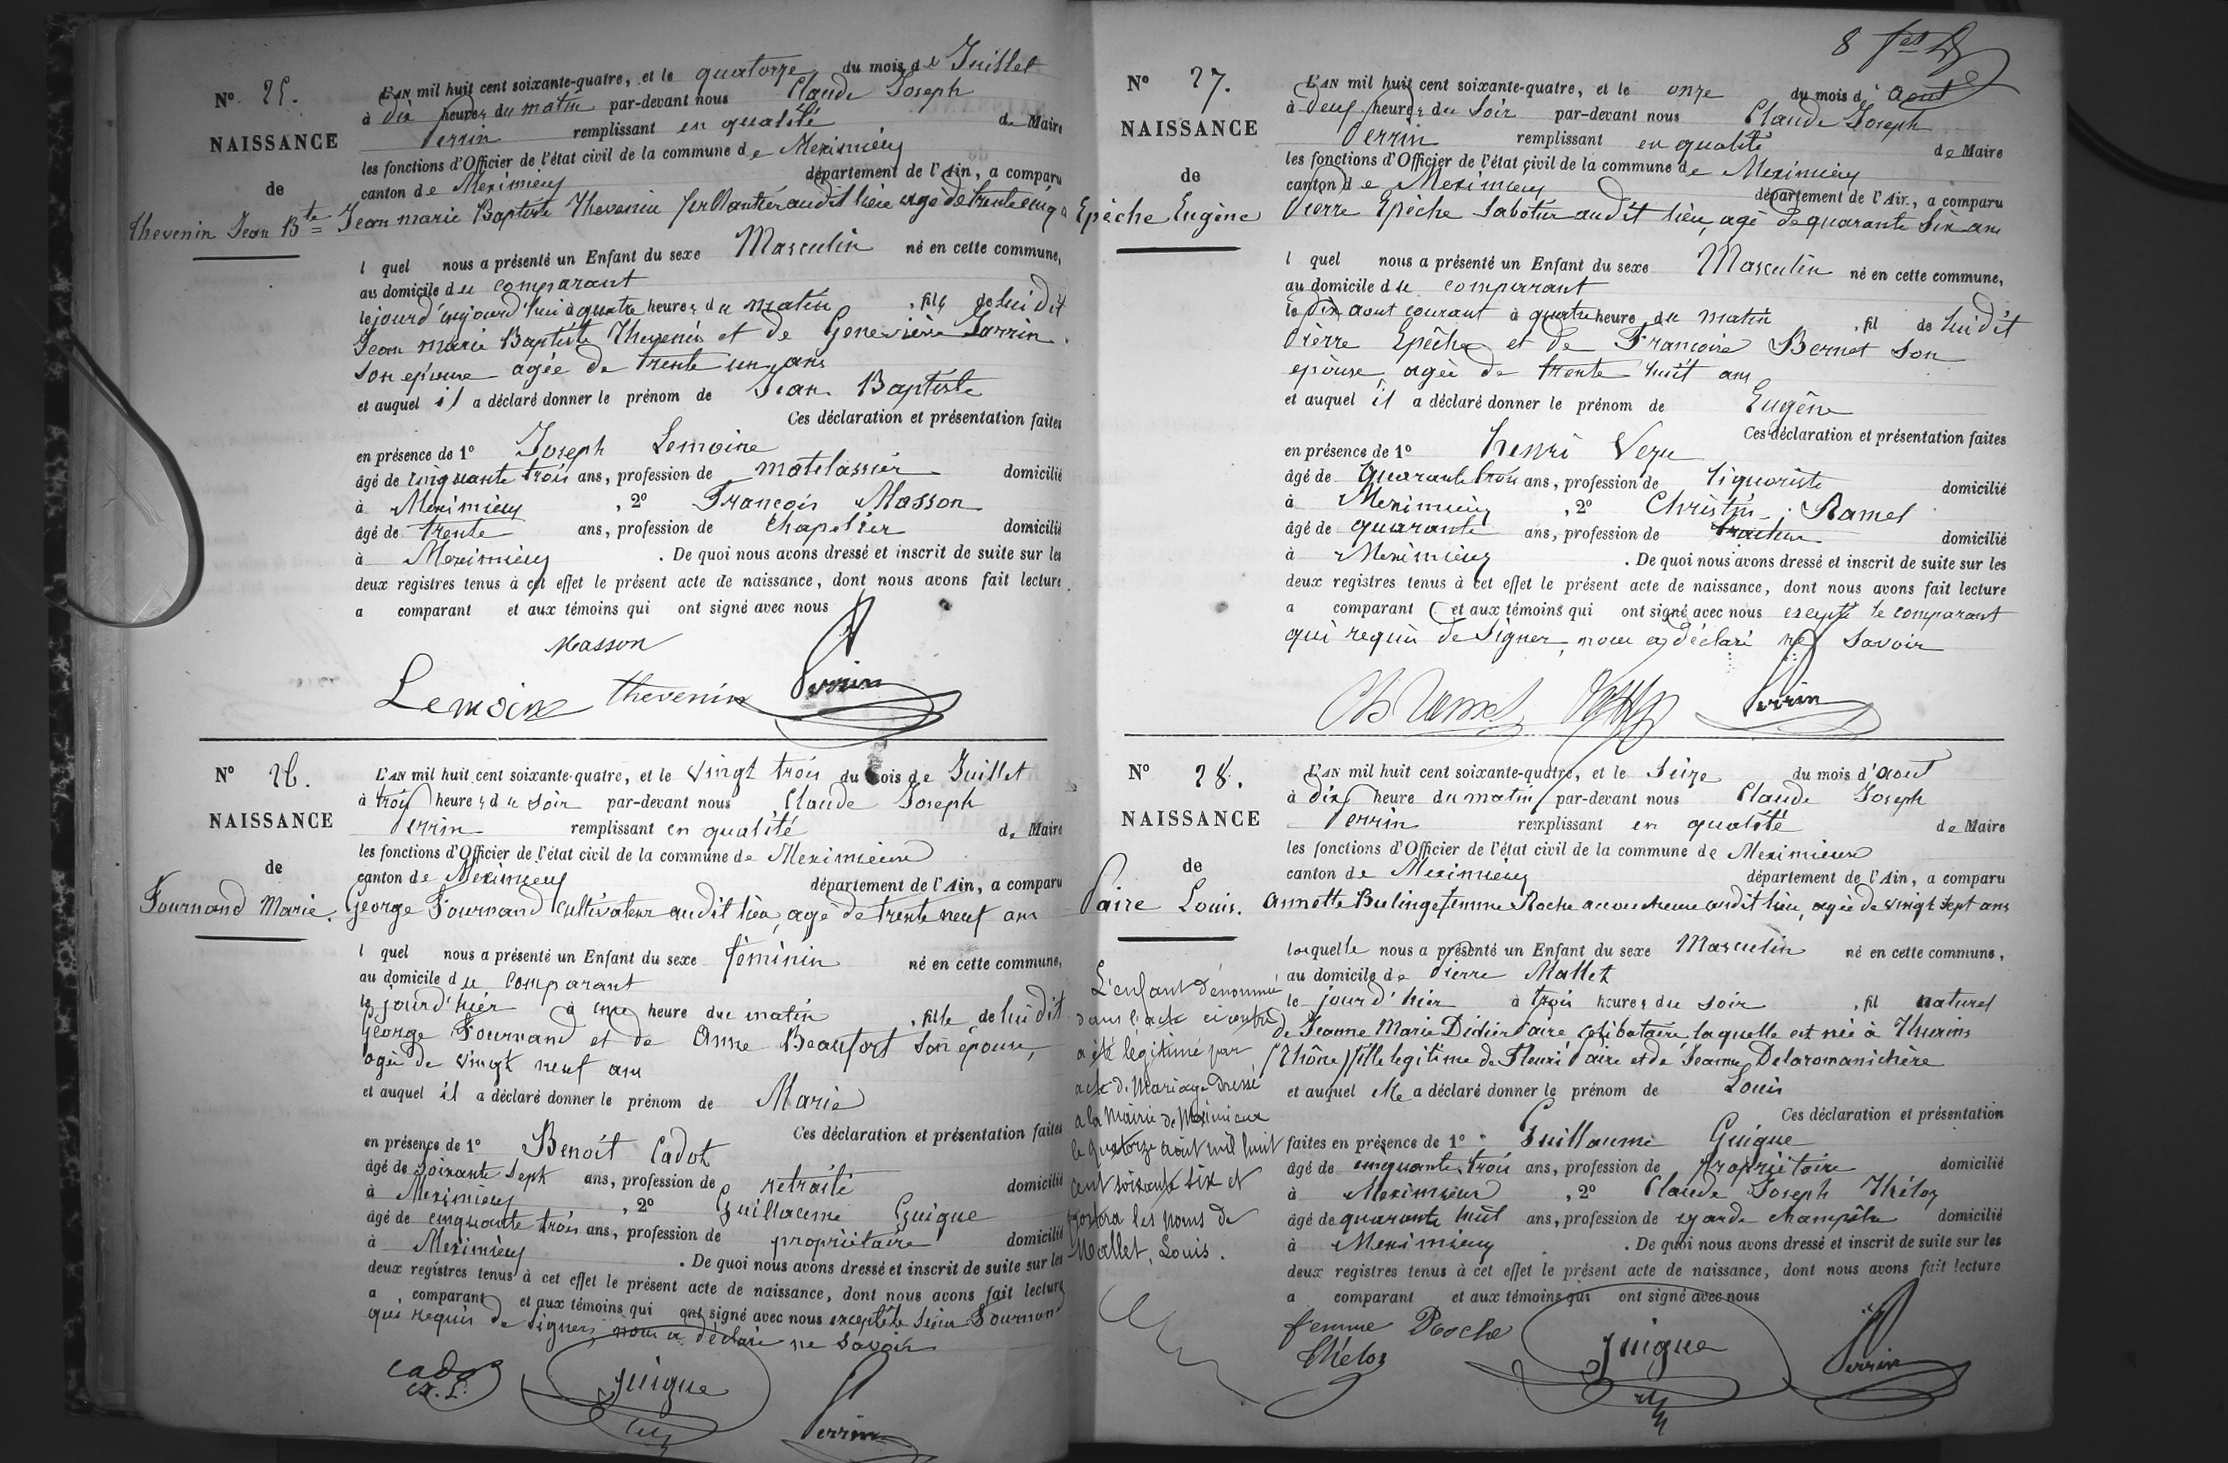 N° 25.
NAISSANCE
de
Thevenin Jean Bte
L'AN mil huit cent soixante-quatre, et le quatorze du mois de Juillet
à dix heures du matin par-devant nous Claude Joseph
Perrin remplissant en qualité de Maire
les fonctions d'Officier de l'état civil de la commune de Meximieux
canton de Meximieux département de l'Ain, a comparu
Jean marie Baptiste Thevenin ferblantier audit lieu agé de trente cinq
l quel nous a présenté un Enfant du sexe Masculin né en cette commune,
au domicile du comparant
le jour d'aujourd'hui à quatre heures du matin, fils de lui dit
Jean marie Baptiste Thevenin et de Geneviève
son epouse agée de trente un ans
et auquel il a déclaré donner le prénom de Jean Baptiste
Ces déclaration et présentation faites
en présence de 1° Joseph Lemoine
âgé de cinquante trois ans, profession de matelassier domicilié
à Meximieux, 2° François Masson
âgé de trente ans, profession de chapelier domicilié
à Meximieux. De quoi nous avons dressé et inscrit de suite sur les
deux registres tenus à cet effet le présent acte de naissance, dont nous avons fait lecture
a comparant et aux témoins qui ont signé avec nous
Masson
Lemoine Thevenin Perrin
N° 26.
NAISSANCE
de
Fournand Marie.
L'AN mil huit cent soixante-quatre, et le vingt trois du mois de Juillet
à trois heures du soir par-devant nous Claude Joseph
Perrin remplissant en qualité de Maire
les fonctions d'Officier de l'état civil de la commune de Meximieux
canton de Meximieux département de l'Ain, a comparu
George Fournand cultivateur audit lieu, agé de trente neuf ans
l quel nous a présenté un Enfant du sexe féminin né en cette commune,
au domicile du comparant
le jour d'hier à une heure du matin, fille de lui dit
George Fournand et de Anne Beaufort son épouse,
agée de vingt neuf ans
et auquel il a déclaré donner le prénom de Marie
Ces déclaration et présentation faites
en présence de 1° Benoît Cadot
âgé de soixante sept ans, profession de retraité domicilié
à Meximieux, 2° Guillaume Guigue
âgé de cinquante trois ans, profession de propriétaire domicilié
à Meximieux. De quoi nous avons dressé et inscrit de suite sur les
deux registres tenus à cet effet le présent acte de naissance, dont nous avons fait lecture
a comparant et aux témoins qui ont signé avec nous excepté le sieur Fournand
qui requis de signer, nous a déclaré ne savoir
Cadot Guigue Perrin
8
N° 27.
NAISSANCE
de
Epèche Eugène
L'AN mil huit cent soixante-quatre, et le onze du mois d'aout
à deux heures du soir par-devant nous Claude Joseph
Perrin remplissant en qualité de Maire
les fonctions d'Officier de l'état civil de la commune de Meximieux
canton de Meximieux département de l'Ain, a comparu
Pierre Epèche sabotier audit lieu, agé de quarante six ans
l quel nous a présenté un Enfant du sexe Masculin né en cette commune,
au domicile du comparant
le dix aout courant à quatre heure du matin, fil de lui dit
Pierre Epèche et de Françoise Bernet son
epouse, agée de trente huit ans
et auquel il a déclaré donner le prénom de Eugène
Ces déclaration et présentation faites
en présence de 1° henri
âgé de quarante trois ans, profession de liquoriste domicilié
à Meximieux, 2° Christin Ramel
âgé de quarante ans, profession de domicilié
à Meximieux. De quoi nous avons dressé et inscrit de suite sur les
deux registres tenus à cet effet le présent acte de naissance, dont nous avons fait lecture
a comparant et aux témoins qui ont signé avec nous excepté le comparant
qui requis de signer, nous a déclaré ne savoir
Ch Ramel Perrin
N° 28.
NAISSANCE
de
Paire Louis.
L'AN mil huit cent soixante-quatre, et le seize du mois d'aout
à dix heure du matin par-devant nous Claude Joseph
Perrin remplissant en qualité de Maire
les fonctions d'Officier de l'état civil de la commune de Meximieux
canton de Meximieux département de l'Ain, a comparu
Annette Bulinge femme Roche accoucheuse audit lieu, agée de vingt sept ans
laquelle nous a présenté un Enfant du sexe Masculin né en cette commune,
au domicile de Pierre Mallet
le jour d'hier à trois heures du soir, fil naturel
de Jeanne Marie Didier Paire, celibataire, laquelle est née à Thurins
(Rhône) fille legitime de Fleuri Paire et de Jeanne Delaromanichère
et auquel elle a déclaré donner le prénom de Louis
Ces déclaration et présentation
faites en présence de 1° Guillaume Guigue
âgé de cinquante trois ans, profession de propriétaire domicilié
à Meximieux, 2° Claude Joseph Théloz
âgé de quarante huit ans, profession de garde champêtre domicilié
à Meximieux. De quoi nous avons dressé et inscrit de suite sur les
deux registres tenus à cet effet le présent acte de naissance, dont nous avons fait lecture
a comparant et aux témoins qui ont signé avec nous
femme Roche
Théloz Guigue Perrin
L'enfant dénommé
dans l'acte ci contre
a été légitimé par
acte de Mariage dressé
a la Mairie de Meximieux
le quatorze août mil huit
cent soixante six et
portera les noms de
Mallet, Louis.